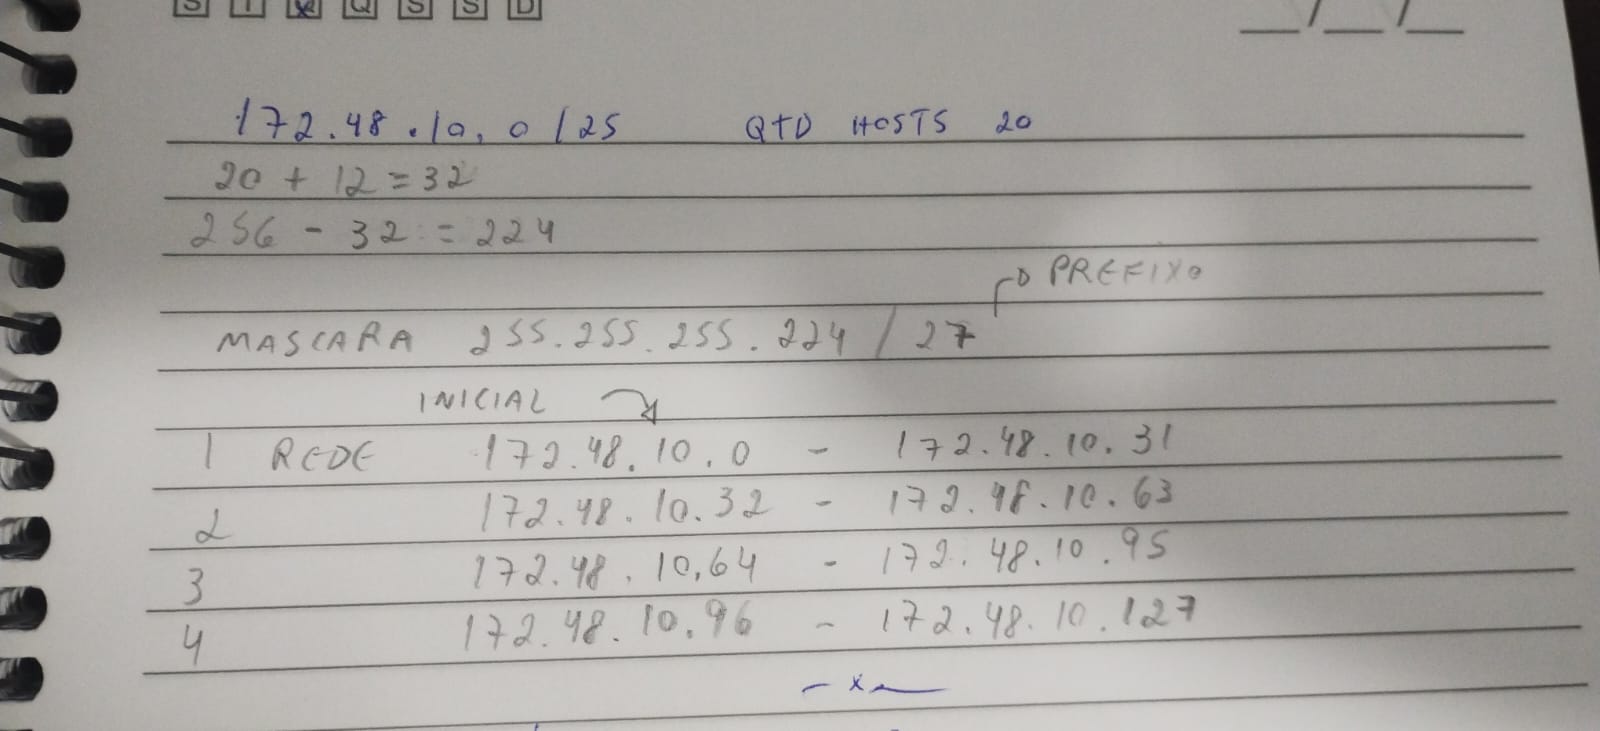 S T Q Q S S D __/__/__
172.48.10.0/25 QTD HOSTS 20
20 + 12 = 32
256 - 32 = 224
PREFIXO
MASCARA 255.255.255.224 / 27
INICIAL
1 REDE 172.48.10.0 - 172.48.10.31
2 172.48.10.32 - 172.48.10.63
3 172.48.10.64 - 172.48.10.95
4 172.48.10.96 - 172.48.10.127